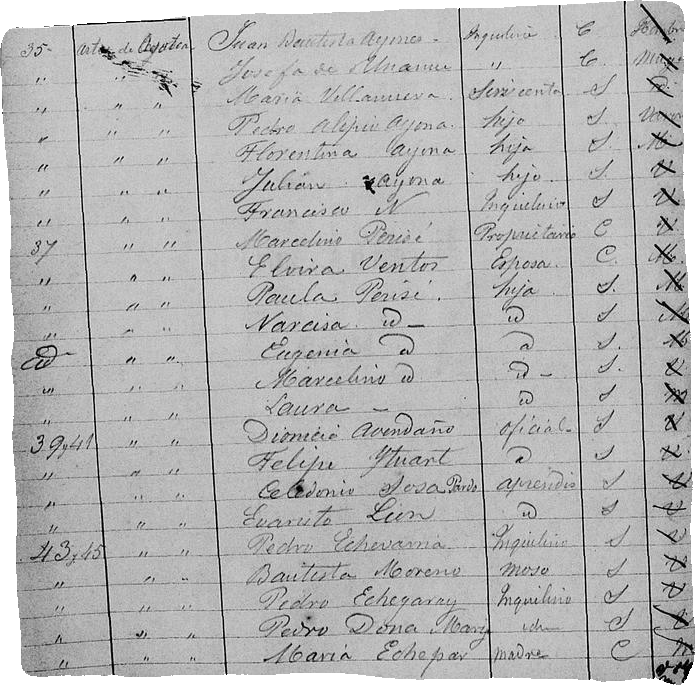 35 Artes de Agosten Juan Bautista Ayones Inquilino C
" " " Josefa de Unanue " C.
" " " Maria Villanueva Sirvienta S
" " " Pedro Alipio Ayona hijo S.
" " " Florentina Ayona hija S.
" " " Julián Ayona hijo S.
" " " Francisco N Inquilino S
37 " " Marcelino Perisé Propietario C
" " " Elvira Ventos Esposa C.
" " " Paula Perisé hija S.
" " " Narcisa id id S
id " " Eugenia id id S.
" " " Marcelino id id S.
" " " Laura - id S
39y41 " " Dionicio Avendaño oficial S
" " " Felipe Ytuart id S
" " " Celedonio Sosa Pardo aprendis S
" " " Evaristo Lion id S
43y45 " " Pedro Echevarria Inquilino S
" " " Bautista Moreno moso S
" " " Pedro Echegaray Inquilino S
" " " Pedro Dona Mary id S
" " " Maria Echepar madre C